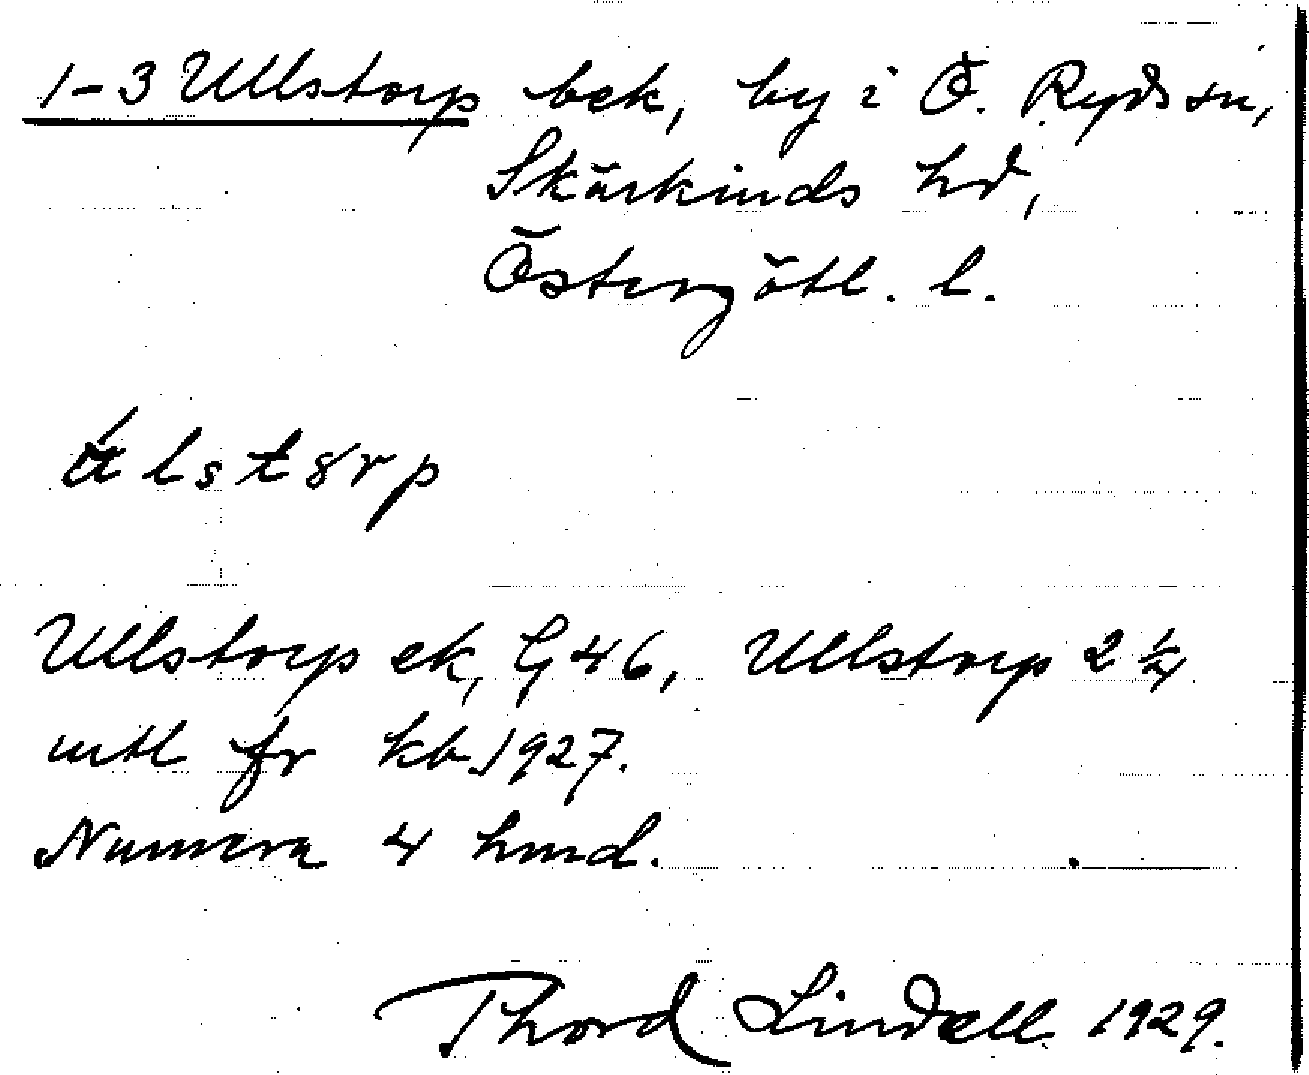 1-3 Ullstorp bek, by i Ö. Ryds sn,
Skärkinds hd,
Östergötl. l.
Ullstorp ek, G 46, Ullstorp 2 ¼
mtl fr kb. 1927.
Numera 4 hmd.
Thord Lindell 1929.